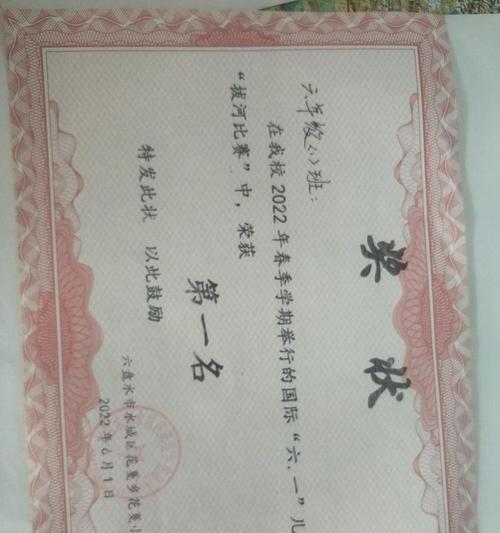 奖状
六年级(1)班：
在我校2022年春季学期举行的国际“六.一”儿
“拔河比赛”中，荣获
第一名
特发此状 以此鼓励
六盘水市水城区花戛乡花戛小
2022年6月1日